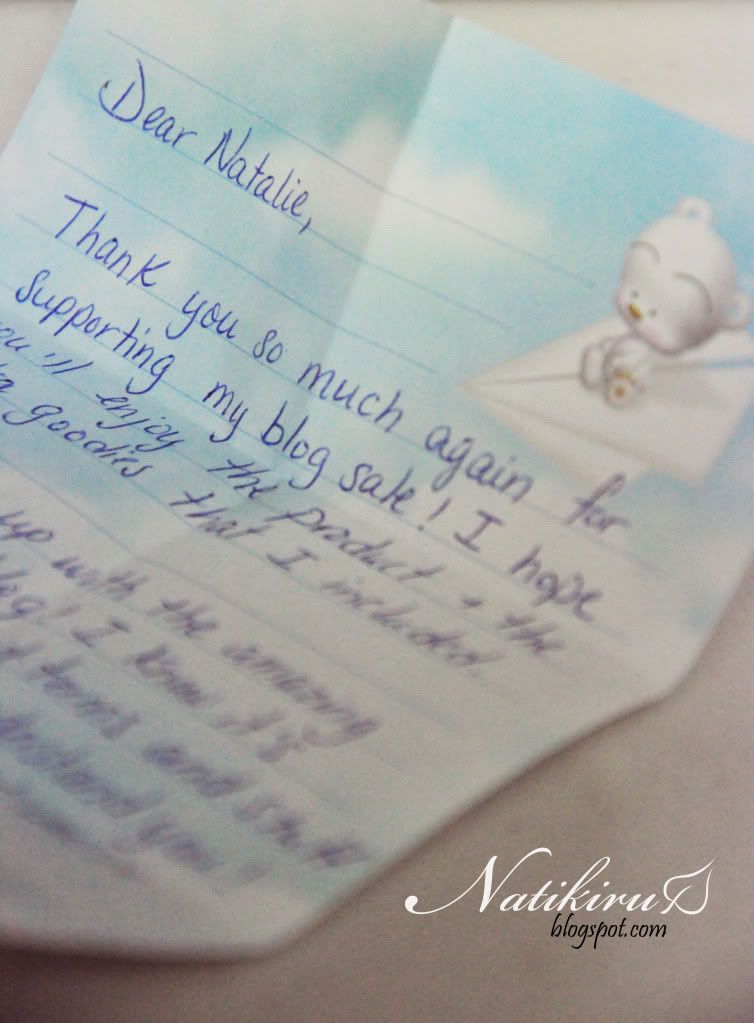 Dear Natalie,
Thank you so much again for
supporting my blog sale! I hope
you'll enjoy the product + the
goodies that I included.
up with the amazing
blog! I know it's
and
Natikiru
blogspot.com